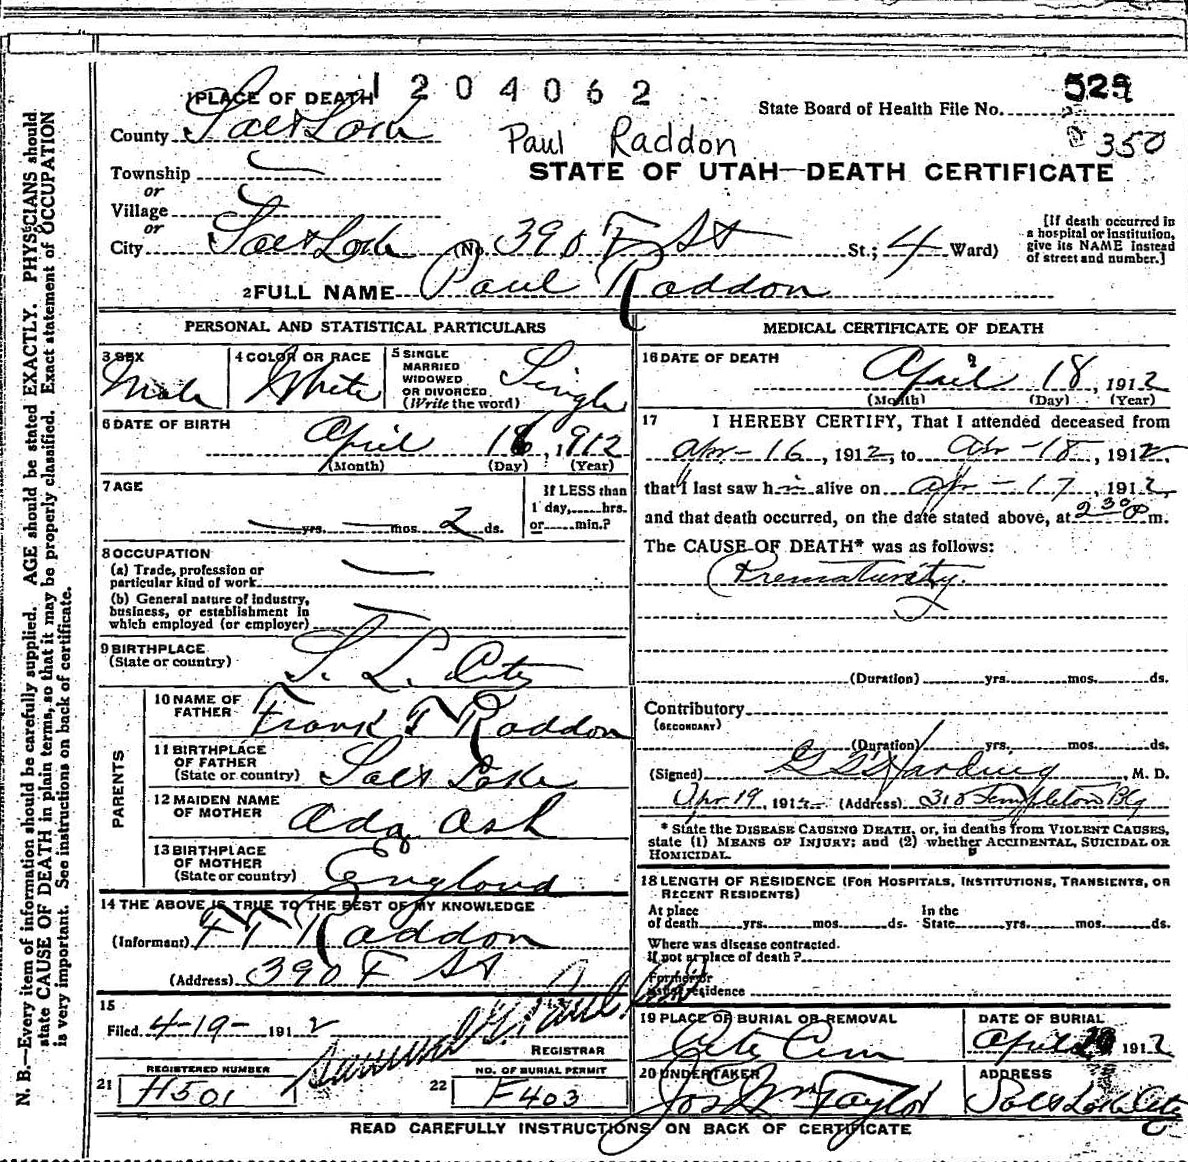 1204062
529
350
1 PLACE OF DEATH
State Board of Health File No.
County Salt Lake
Paul Raddon
STATE OF UTAH—DEATH CERTIFICATE
Township
or
Village
or
City Salt Lake (No. 390 F St St.; 4 Ward)
[If death occurred in a hospital or institution, give its NAME instead of street and number.]
2 FULL NAME Paul Raddon
PERSONAL AND STATISTICAL PARTICULARS
3 SEX Male
4 COLOR OR RACE White
5 SINGLE MARRIED WIDOWED OR DIVORCED (Write the word) Single
6 DATE OF BIRTH April 16, 1912
(Month) (Day) (Year)
7 AGE
yrs. mos. 2 ds.
If LESS than 1 day, hrs. or min.?
8 OCCUPATION
(a) Trade, profession or particular kind of work
(b) General nature of industry, business, or establishment in which employed (or employer)
9 BIRTHPLACE (State or country) S. L. City
PARENTS
10 NAME OF FATHER Frank T Raddon
11 BIRTHPLACE OF FATHER (State or country) Salt Lake
12 MAIDEN NAME OF MOTHER Ada Ash
13 BIRTHPLACE OF MOTHER (State or country) England
14 THE ABOVE IS TRUE TO THE BEST OF MY KNOWLEDGE
(Informant) F T Raddon
(Address) 390 F St
15
Filed 4-19- 1912
Samuel G Paul
REGISTRAR
REGISTERED NUMBER
21 H501
NO. OF BURIAL PERMIT
22 F403
MEDICAL CERTIFICATE OF DEATH
16 DATE OF DEATH
April 18, 1912
(Month) (Day) (Year)
17 I HEREBY CERTIFY, That I attended deceased from
Apr-16, 1912, to Apr-18, 1912,
that I last saw him alive on Apr-17, 1912,
and that death occurred, on the date stated above, at 2 30 P m.
The CAUSE OF DEATH* was as follows:
Prematurity.
(Duration) yrs. mos. ds.
Contributory
(SECONDARY)
(Duration) yrs. mos. ds.
(Signed) Harding, M. D.
Apr 19, 1912 (Address) 310 Templeton Blg
* State the DISEASE CAUSING DEATH, or, in deaths from VIOLENT CAUSES, state (1) MEANS OF INJURY; and (2) whether ACCIDENTAL, SUICIDAL OR HOMICIDAL.
18 LENGTH OF RESIDENCE (FOR HOSPITALS, INSTITUTIONS, TRANSIENTS, OR RECENT RESIDENTS)
At place of death yrs. mos. ds. In the State yrs. mos. ds.
Where was disease contracted.
If not at place of death?
Former or usual residence
19 PLACE OF BURIAL OR REMOVAL
City Cem
DATE OF BURIAL
April 20 1912
20 UNDERTAKER
Jos Wm Taylor
ADDRESS
Salt Lake City
READ CAREFULLY INSTRUCTIONS ON BACK OF CERTIFICATE
N. B.—Every item of information should be carefully supplied. AGE should be stated EXACTLY. PHYSICIANS should
state CAUSE OF DEATH in plain terms, so that it may be properly classified. Exact statement of OCCUPATION
is very important. See instructions on back of certificate.